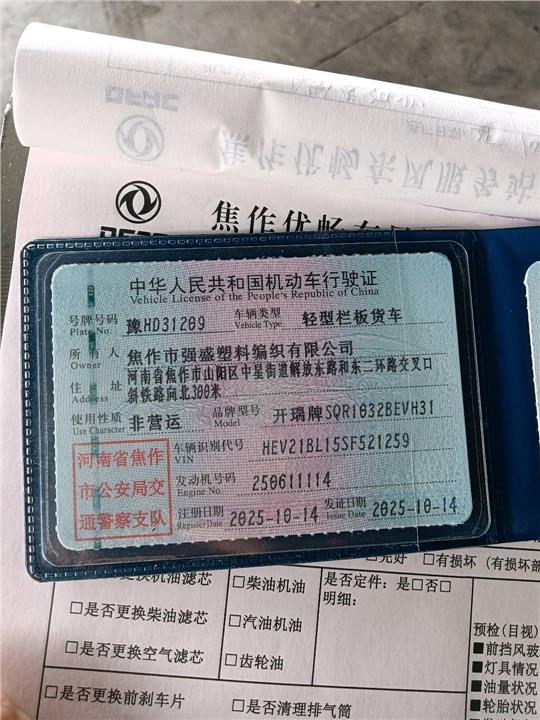 焦作优畅东风服务站
DFAC
焦作优畅东风
中华人民共和国机动车行驶证
Vehicle License of the People's Republic of China
号牌号码 豫HD31209 车辆类型 轻型栏板货车
Plate No. Vehicle Type
所有人 焦作市强盛塑料编织有限公司
Owner
住址 河南省焦作市山阳区中星街道解放东路和东二环路交叉口
Address 斜铁路向北300米
使用性质 非营运 品牌型号 开瑞牌SQR1032BEVH31
Use Character Model
河南省焦作
市公安局交
通警察支队
车辆识别代号 HEV21BL15SF521259
VIN
发动机号码 250611114
Engine No.
注册日期 2025-10-14 发证日期 2025-10-14
Register Date Issue Date
□完好 □有损坏 (有损坏部
更换机油滤芯 □柴油机油 是否定件：是□否□
□是否更换柴油滤芯 □汽油机油 明细：
□是否更换空气滤芯 □齿轮油
预检(目视)
■前挡风玻
■灯具情况
■油量状况
■轮胎状况
□是否更换前刹车片 □是否清理排气筒